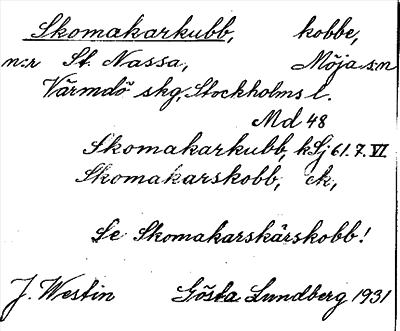 Skomakarkubb, kobbe,
n:r St. Nassa, Möja s:n
Värmdö skg, Stockholms l.
Md 48
Skomakarkubb, kSj 61.7.VI
Skomakarskobb, ek,
Se Skomakarskärskobb!
J. Westin Gösta Lundberg 1931